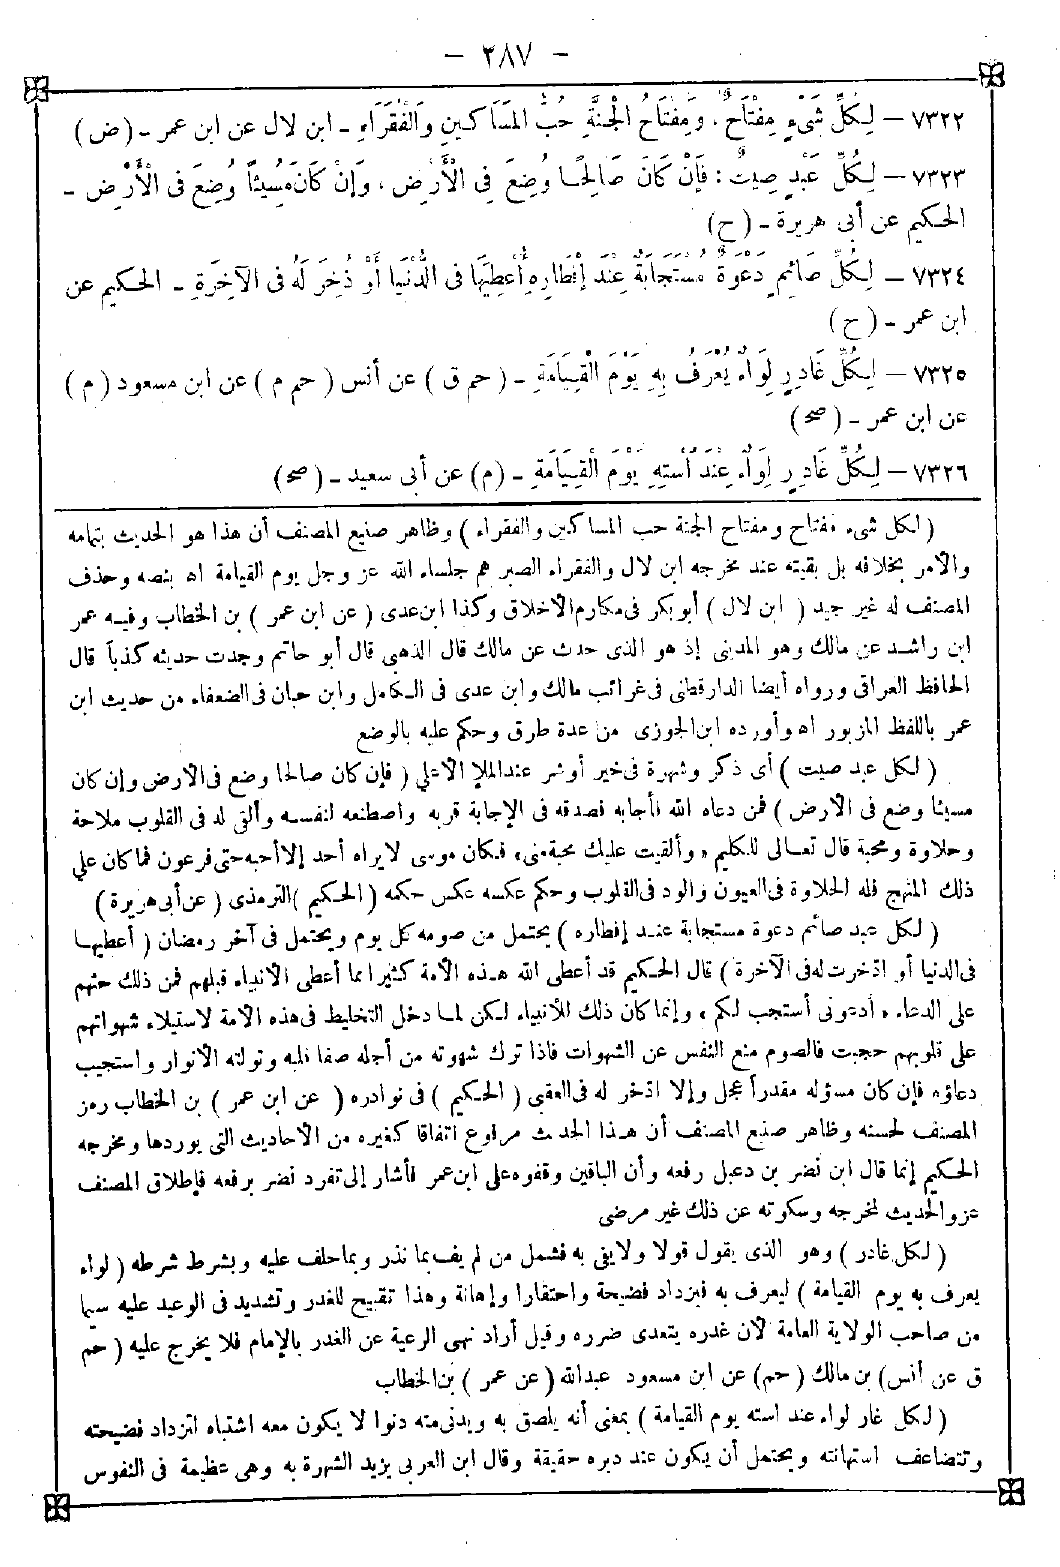 — ٢٨٧ —
٧٣٢٢ — لِكُلِّ شَيْءٍ مِفْتَاحٌ، وَمِفْتَاحُ الْجَنَّةِ حُبُّ الْمَسَاكِينِ وَالْفُقَرَاءِ - ابن لال عن ابن عمر - (ض)
٧٣٢٣ — لِكُلِّ عَبْدٍ صِيتٌ: فَإِنْ كَانَ صَالِحًا وُضِعَ فِى الْأَرْضِ، وَإِنْ كَانَ مُسِيئًا وُضِعَ فِى الْأَرْضِ -
الحكيم عن أبى هريرة - (ح)
٧٣٢٤ — لِكُلِّ صَائِمٍ دَعْوَةٌ مُسْتَجَابَةٌ عِنْدَ إِفْطَارِهِ أُعْطِيَهَا فِى الدُّنْيَا أَوْ ذُخِرَ لَهُ فِى الْآخِرَةِ - الحكيم عن
ابن عمر - (ح)
٧٣٢٥ — لِكُلِّ غَادِرٍ لِوَاءٌ يُعْرَفُ بِهِ يَوْمَ الْقِيَامَةِ - (حم ق) عن أنس (حم م) عن ابن مسعود (م)
عن ابن عمر - (صح)
٧٣٢٦ — لِكُلِّ غَادِرٍ لِوَاءٌ عِنْدَ أَسْتِهِ يَوْمَ الْقِيَامَةِ - (م) عن أبى سعيد - (صح)
(لكل شىء مفتاح ومفتاح الجنة حب المساكين والفقراء) وظاهر صنيع المصنف أن هذا هو الحديث بتمامه
والأمر بخلافه بل بقيته عند مخرجه ابن لال والفقراء الصبر هم جلساء الله عز وجل يوم القيامة اه بنصه وحذف
المصنف له غير جيد (ابن لال) أبو بكر فى مكارم الأخلاق وكذا ابن عدى (عن ابن عمر) بن الخطاب وفيه عمر
ابن راشد عن مالك وهو المدينى إذ هو الذى حدث عن مالك قال الذهبى قال أبو حاتم وجدت حديثه كذباً قال
الحافظ العراقى ورواه أيضا الدارقطنى فى غرائب مالك وابن عدى فى الكامل وابن حبان فى الضعفاء من حديث ابن
عمر باللفظ المزبور اه وأورده ابن الجوزى من عدة طرق وحكم عليه بالوضع
(لكل عبد صيت) أى ذكر وشهرة فى خير أو شر عند الملإ الأعلى (فإن كان صالحا وضع فى الارض وإن كان
مسيئا وضع فى الأرض) فمن دعاه الله فأجابه فصدقه فى الإجابة قربه واصطنعه لنفسه وألقى له فى القلوب ملاحة
وحلاوة ومحبة قال تعالى للكليم «وألقيت عليك محبة منى» فكان موسى لا يراه أحد إلا أحبه حتى فرعون فما كان على
ذلك المنهج فله الحلاوة فى العيون والود فى القلوب وحكم عكسه عكس حكمه (الحكيم) الترمذى (عن أبى هريرة)
(لكل عبد صائم دعوة مستجابة عند إفطاره) يحتمل من صومه كل يوم ويحتمل فى آخر رمضان (أعطيها
فى الدنيا أو اذخرت له فى الآخرة) قال الحكيم قد أعطى الله هذه الأمة كثيرا مما أعطى الأنبياء قبلهم فمن ذلك حثهم
على الدعاء «أدعونى أستجب لكم» وإنما كان ذلك للأنبياء لكن لما دخل التخليط فى هذه الامة لاستيلاء شهواتهم
على قلوبهم حجبت فالصوم منع النفس عن الشهوات فاذا ترك شهوته من أجله صفا قلبه وتولته الأنوار واستجيب
دعاؤه فإن كان مسؤله مقدراً عجل وإلا اذخر له فى العقبى (الحكيم) فى نوادره (عن ابن عمر) بن الخطاب رمز
المصنف لحسنه وظاهر صنع المصنف أن هذا الحديث مرفوع اتفاقا كغيره من الأحاديث التى يوردها ومخرجه
الحكيم إنما قال ابن نضر بن دعبل رفعه وأن الباقين وقفوه على ابن عمر فأشار إلى تفرد نضر برفعه فإطلاق المصنف
عزو الحديث لمخرجه وسكوته عن ذلك غير مرضى
(لكل غادر) وهو الذى يقول قولا ولا يفى به فشمل من لم يف بما نذر وبما حلف عليه وبشرط شرطه (لواء
يعرف به يوم القيامة) ليعرف به فيزداد فضيحة واحتقارا وإهانة وهذا تقبيح للغدر وتشديد فى الوعيد عليه سيما
من صاحب الولاية العامة لأن غدره يتعدى ضرره وقيل أراد نهى الرعية عن الغدر بالإمام فلا يخرج عليه (حم
ق عن أنس) بن مالك (حم) عن ابن مسعود عبدالله (عن عمر) بن الخطاب
(لكل غار لواء عند استه يوم القيامة) بمعنى أنه يلصق به ويدنى منه دنوا لا يكون معه اشتباه لتزداد فضيحته
وتتضاعف استهانته ويحتمل أن يكون عند دبره حقيقة وقال ابن العربى يزيد الشهرة به وهى عظيمة فى النفوس